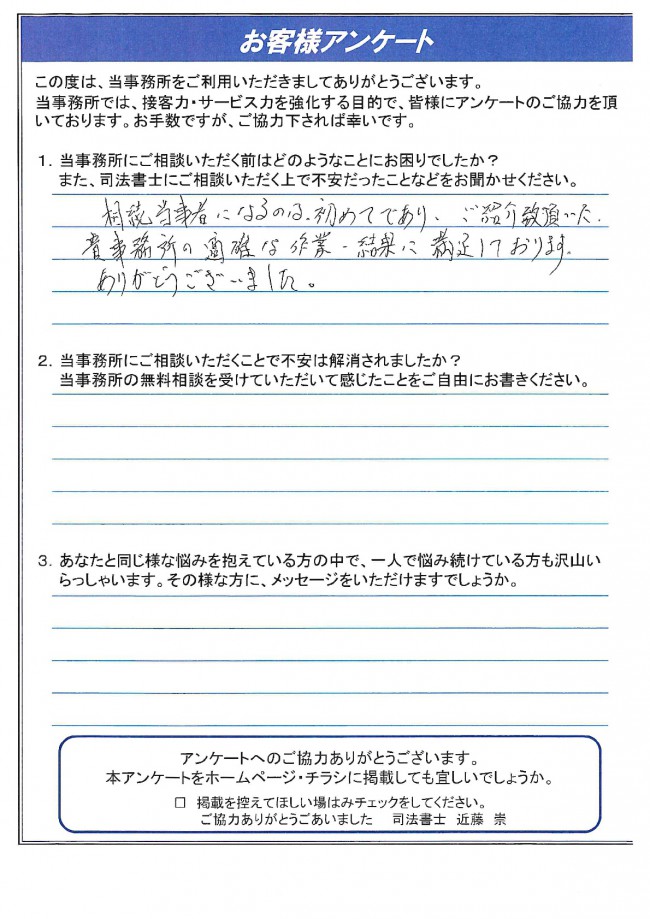 お客様アンケート
この度は、当事務所をご利用いただきましてありがとうございます。
当事務所では、接客力・サービス力を強化する目的で、皆様にアンケートのご協力を頂
いております。お手数ですが、ご協力下されば幸いです。
1. 当事務所にご相談いただく前はどのようなことにお困りでしたか？
また、司法書士にご相談いただく上で不安だったことなどをお聞かせください。
相続当事者になるのは初めてであり、ご紹介致頂いた
貴事務所の適確な作業・結果に満足しております。
ありがとうございました。
2. 当事務所にご相談いただくことで不安は解消されましたか？
当事務所の無料相談を受けていただいて感じたことをご自由にお書きください。
3. あなたと同じ様な悩みを抱えている方の中で、一人で悩み続けている方も沢山い
らっしゃいます。その様な方に、メッセージをいただけますでしょうか。
アンケートへのご協力ありがとうございます。
本アンケートをホームページ・チラシに掲載しても宜しいでしょうか。
□ 掲載を控えてほしい場はみチェックをしてください。
ご協力ありがとうごあいました 司法書士 近藤 崇